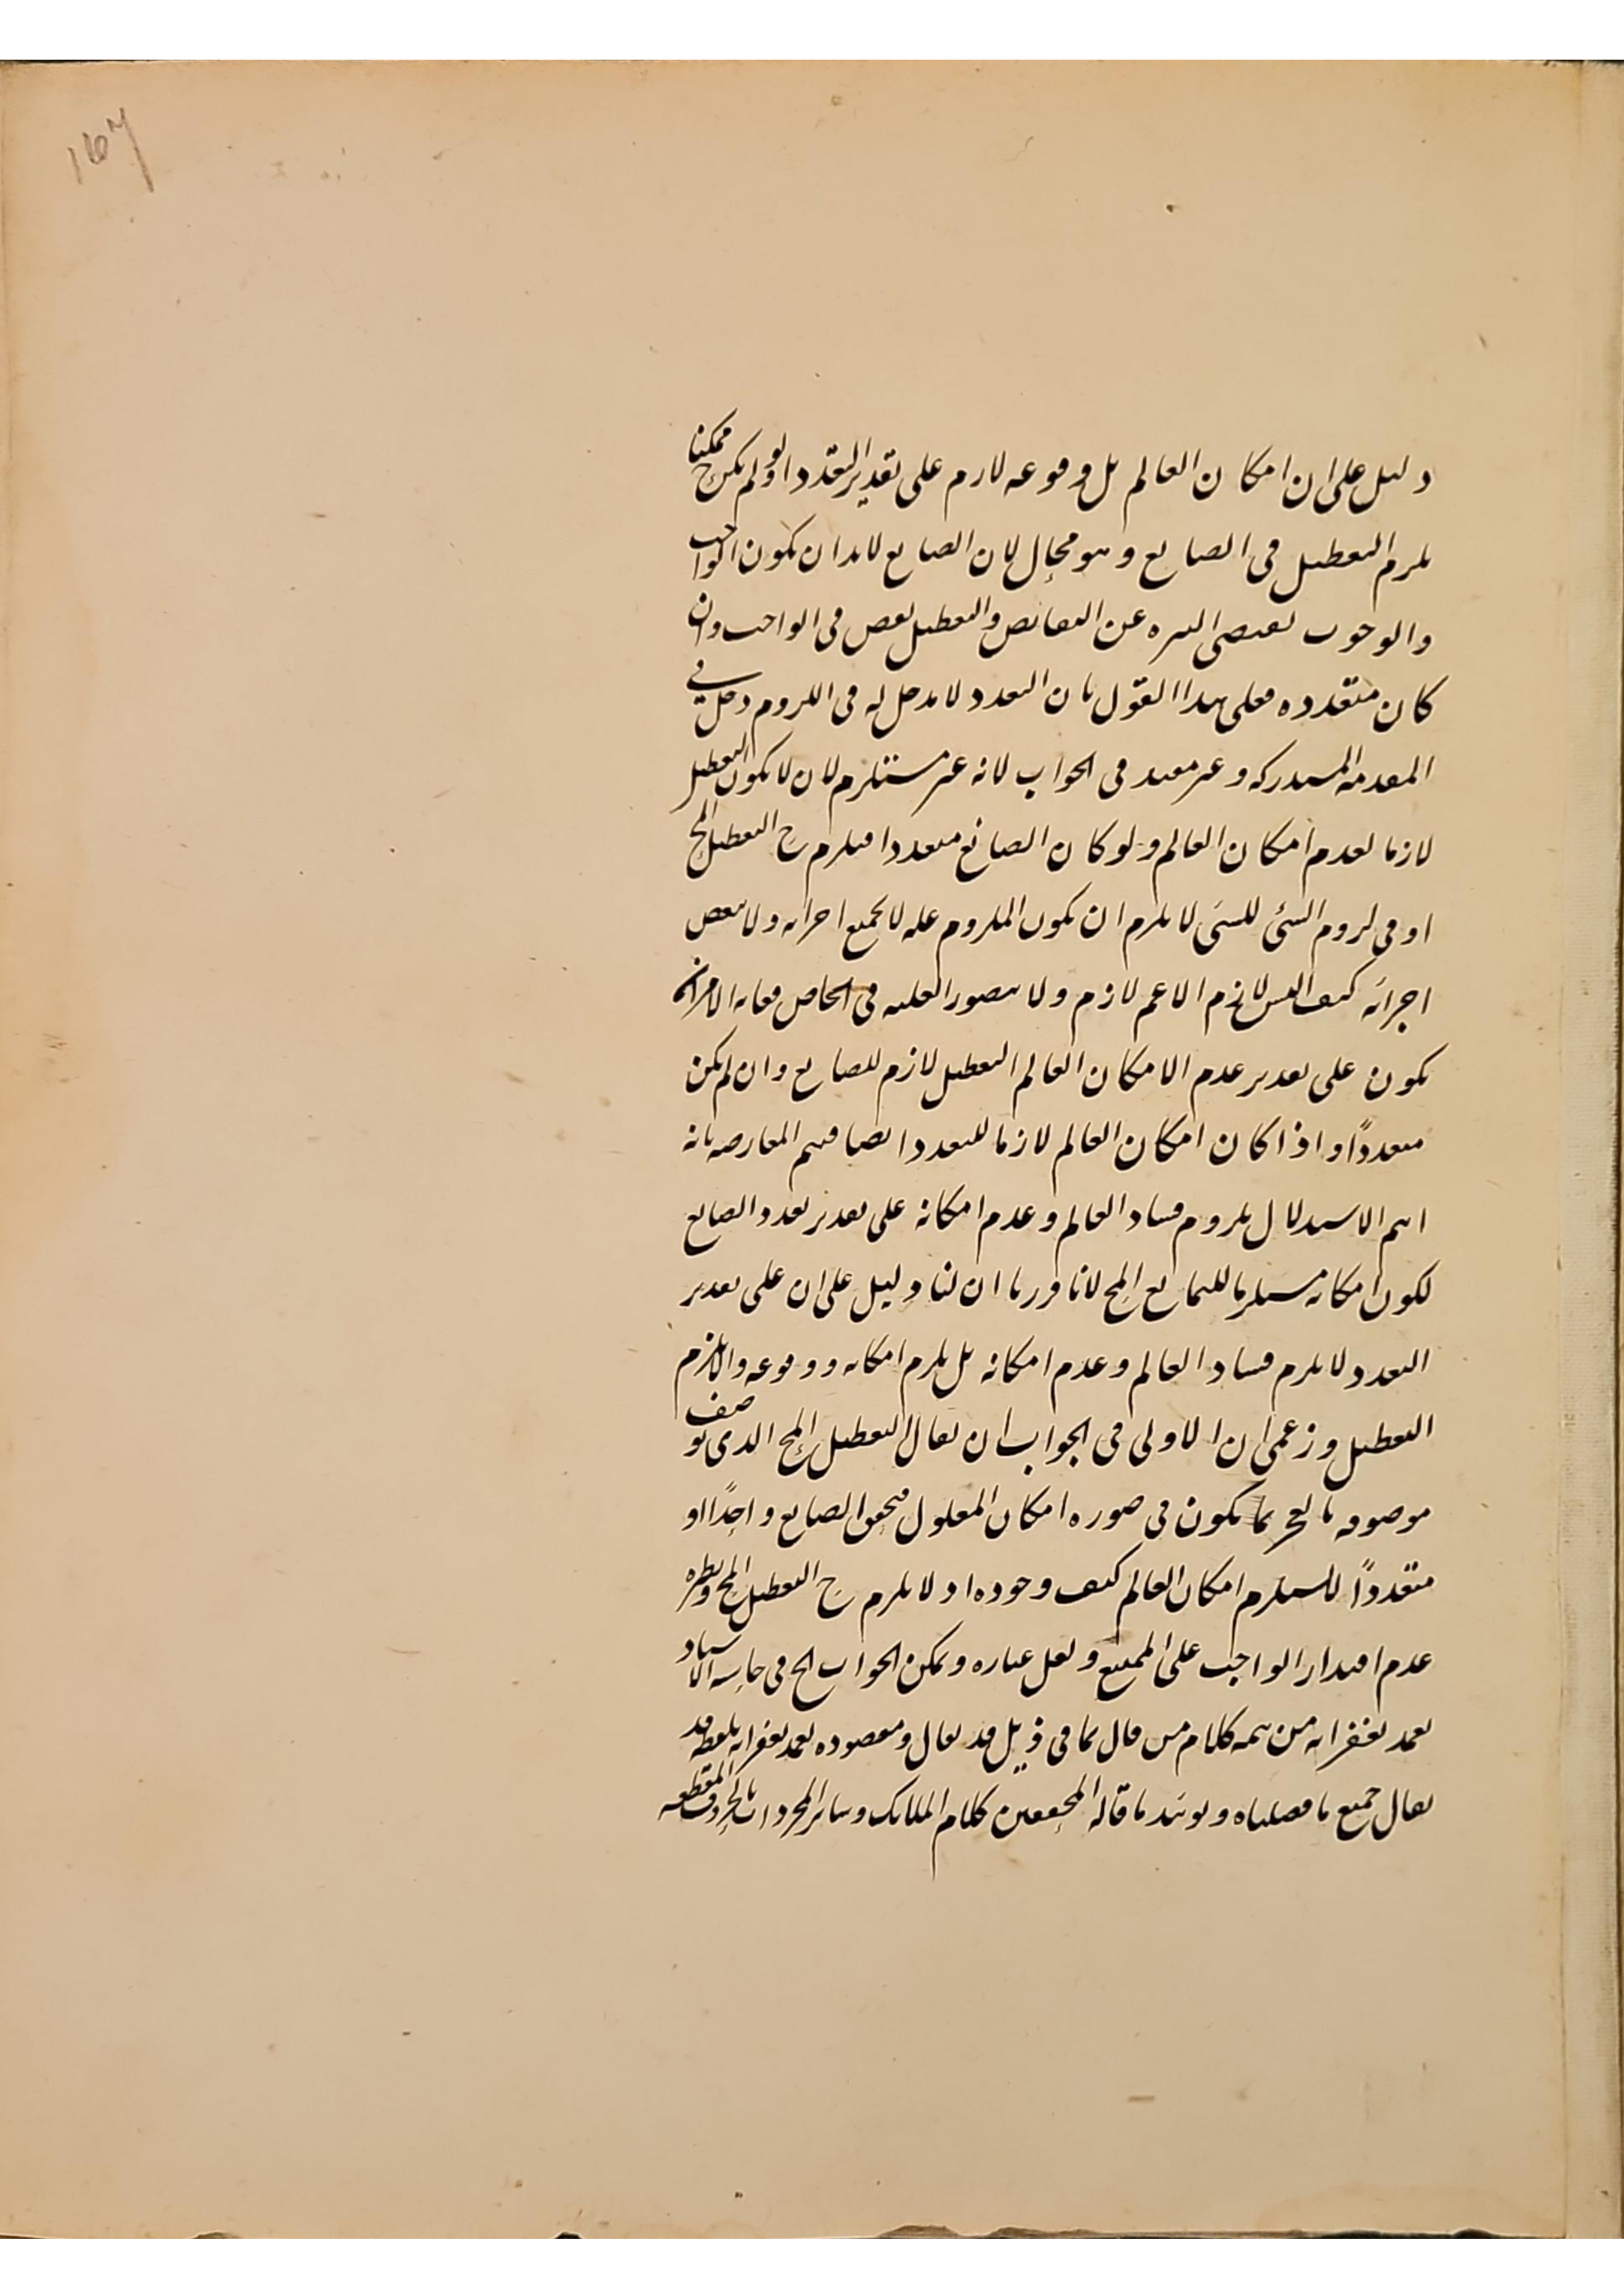 167
دليل على ان امكان العالم بل وقوعه لازم على تقدير التعدد اولو لم يكن ح ممكنا
يلزم التعطيل في الصانع وهو محال لان الصانع لابد ان يكون الواجب
والوجوب يقتضي التنزه عن النقائص والتعطيل نقص في الواجب وان
كان متعدده فعلى هذا القول بان التعدد لا مدخل له في اللزوم دخل في
المقدمة المستدركه وغير مفيد في الجواب لانه غير مستلزم لان لا يكون التعطيل
لازما لعدم امكان العالم ولو كان الصانع متعددا فيلزم ح التعطيل المح
او في لزوم الشئ للشئ لا يلزم ان يكون الملزوم علة لا لجميع اجزائه ولا لبعض
اجزائه كيف اليس لازم الاعم لازم ولا يتصور العليه في الخاص فغاية الامر ان
يكون على تقدير عدم الامكان العالم التعطيل لازم للصانع وان لم يكن
متعددًا واذا كان امكان العالم لازما للتعدد ايضا فيتم المعارضه بانه
ايتم الاستدلال بلزوم فساد العالم وعدم امكانه على تقدير تعدد الصانع
لكون امكانه مستلزما للتمانع المح لانا قررنا ان لنا دليل على ان على تقدير
التعدد لا يلزم فساد العالم وعدم امكانه بل يلزم امكانه ووقوعه والا يلزم
التعطيل وزعمي ان الاولى في الجواب ان يقال التعطيل المح الذي هو صفت
موصوفه بالعجز بما يكون في صوره امكان المعلول فتحقق الصانع واحدًا او
متعددًا لا يستلزم امكان العالم كيف وجوده اذ لا يلزم ح التعطيل المح ونظيره
عدم اقتدار الواجب على الممتنع ونقل عباره ويمكن الجواب الخ في حاشيه الاستاد
تغمد بغفرانه من تتمه كلام من قال بما في ذيل قد يقال ومقصوده تغمد بغفرانه بلفظه قد
يقال جميع ما فصلناه ويؤيد ما قاله المحققين كلام الملائك وسائر المجردات بالحروف المقطعه